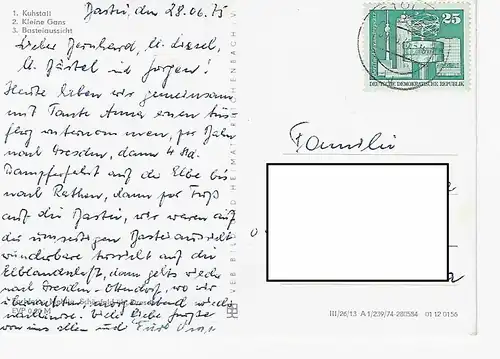 Bastei, den 28.06.75
1. Kuhstall
2. Kleine Gans
3. Basteiaussicht
Lieber Bernhard, li. Liesel,
li. Bärbel und Jürgen!
Heute haben wir gemeinsam
mit Tante Anna einen Aus-
flug unternommen, per Bahn
nach Dresden, dann 4 Std.
Dampferfahrt auf der Elbe bis
nach Rathen, dann per Fuß
auf die Bastei, wir waren auf
der umseitigen Basteiaussicht
wunderbare Aussicht auf die
Elblandschaft, dann gehts wieder
nach Dresden-Ottendorf, wo wir
EVP 0,20 M
Viele Liebe Grüße
von uns allen und
VEB BILD UND HEIMAT REICHENBACH V
25
DEUTSCHE DEMOKRATISCHE REPUBLIK
Familie
III/26/13 A 1/239/74-280584 01 12 0156